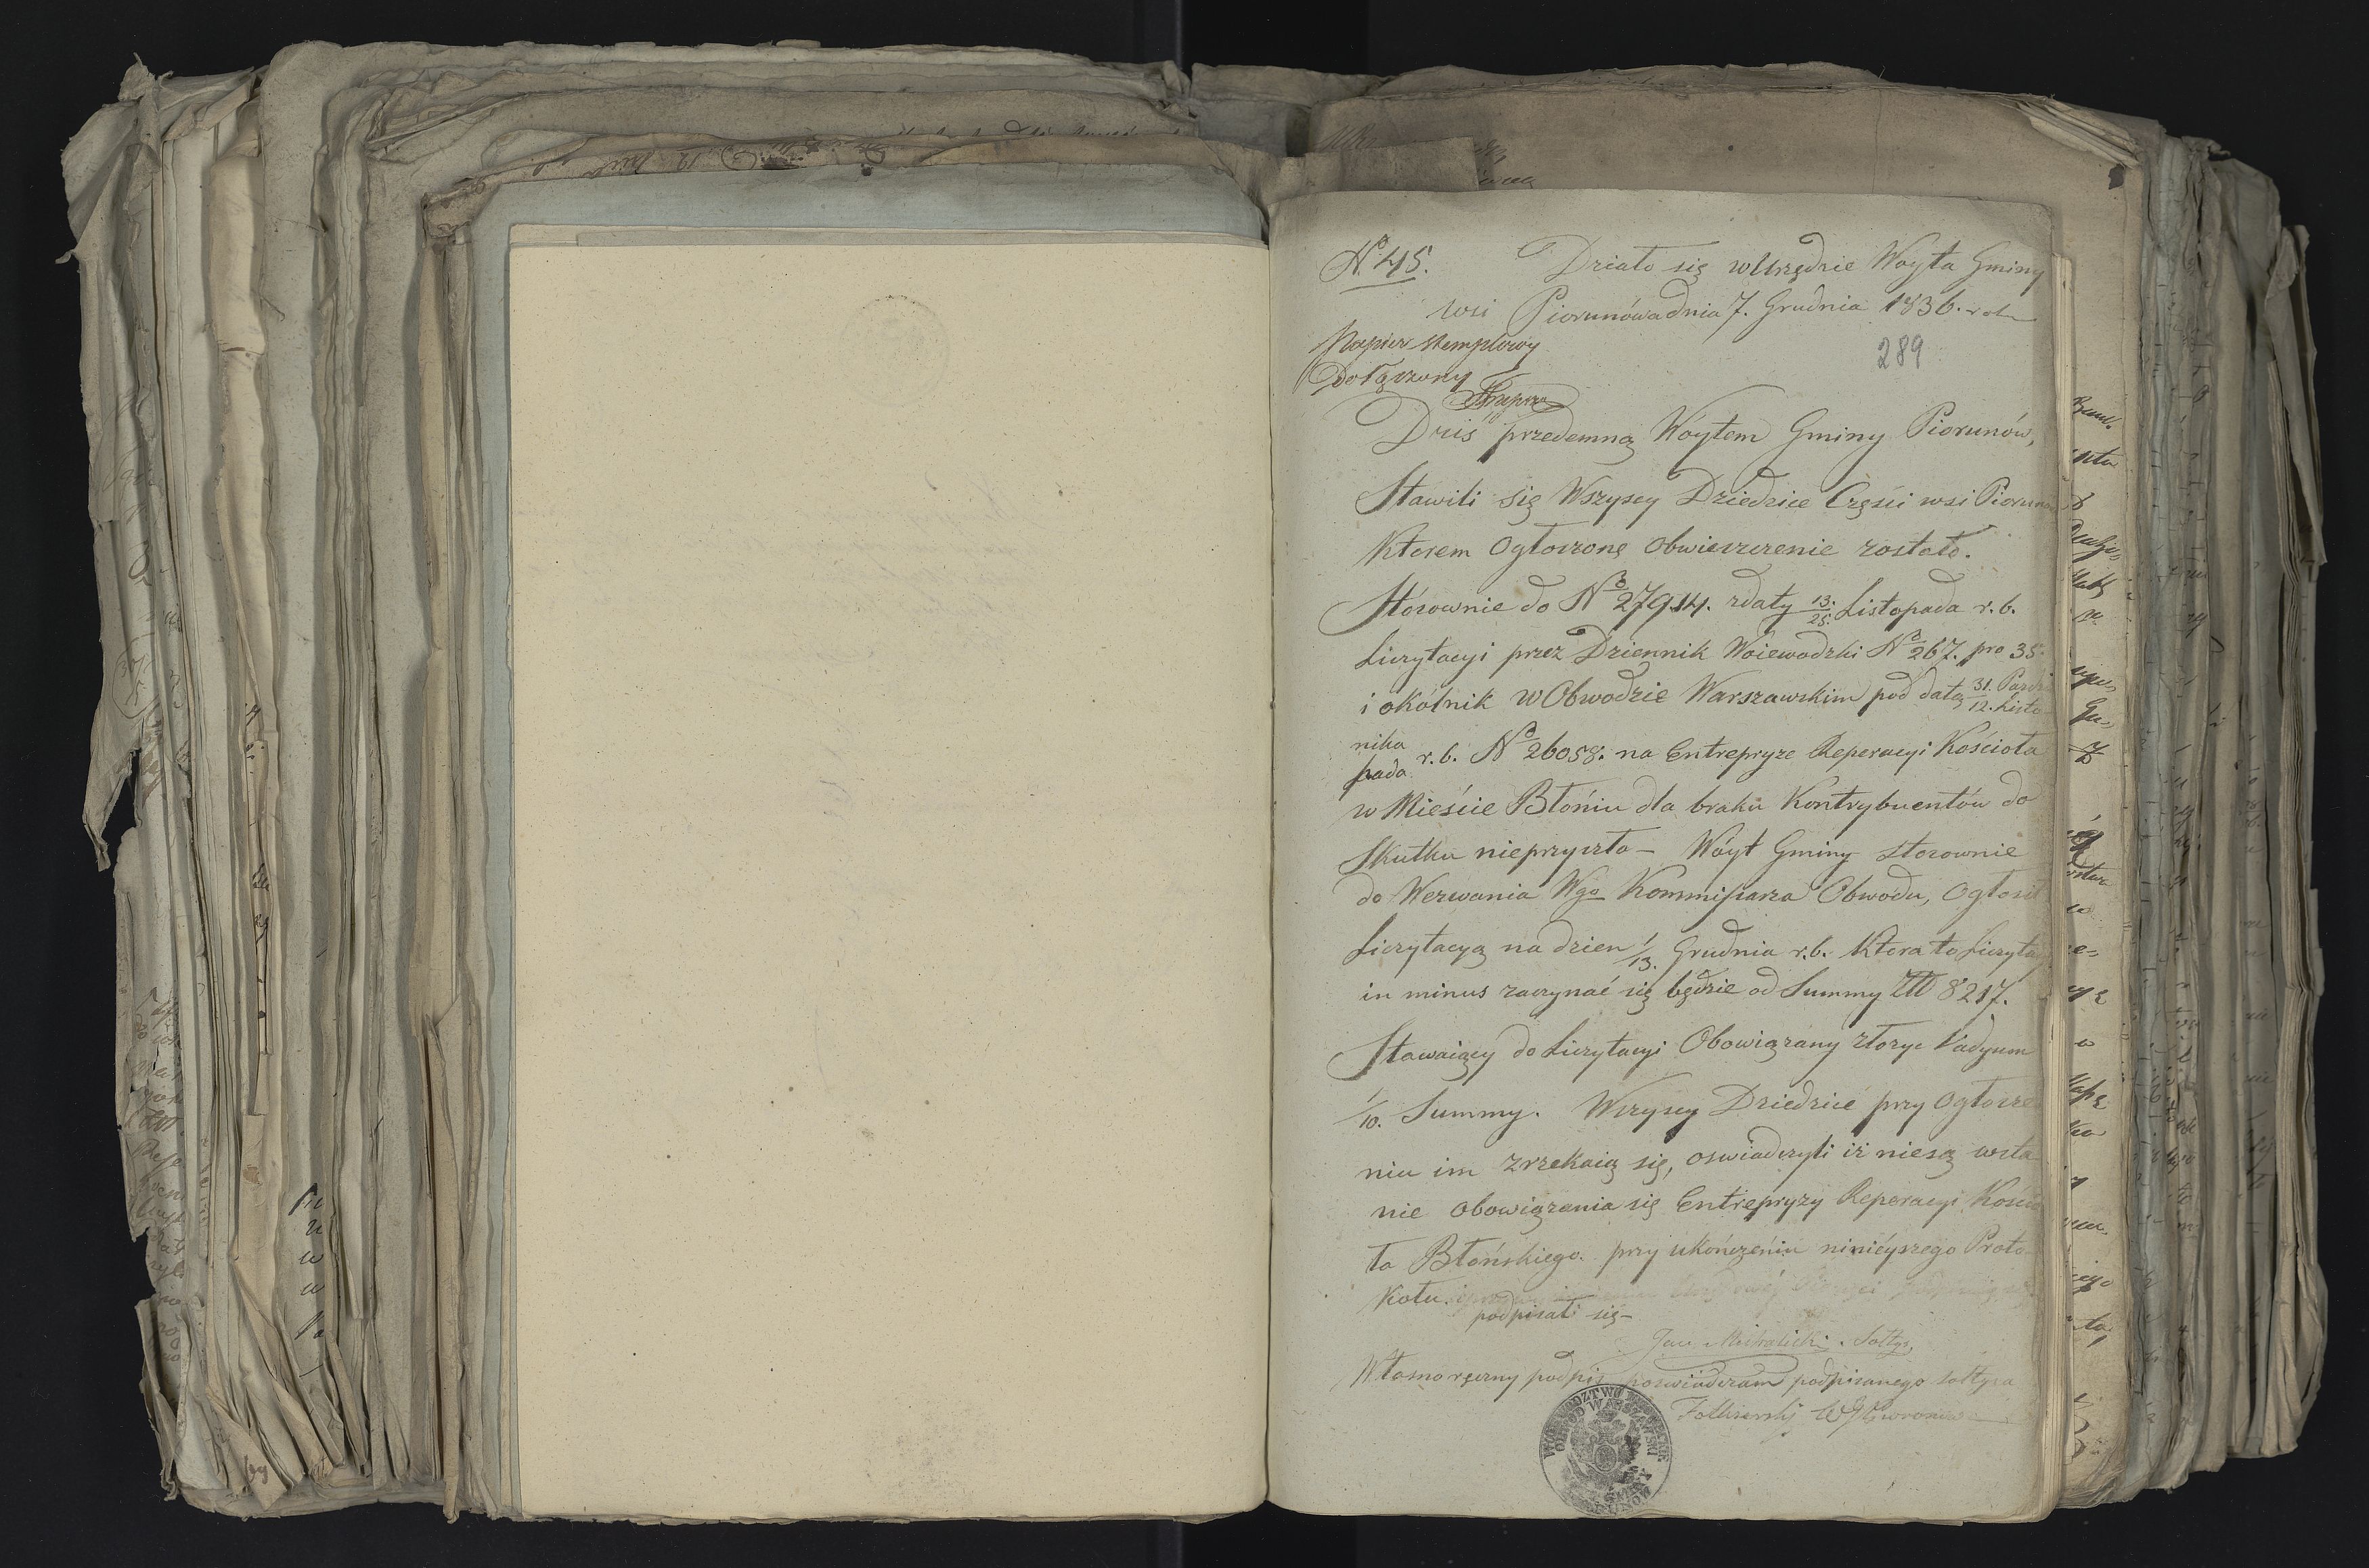 No 45. Działo się w Urzędzie Woyta Gminy
wsi Piorunówa dnia 7. Grudnia 1836. roku
289
Papier stemplowy
Dołączony
Dziś przedemną Woytem Gminy Piorunów,
Stawili się Wszyscy Dziedzice Części wsi Piorunowa
Ktorem Ogłoszone obwieszczenie zostało.
Stósownie do No 27914. z daty 13/25. Listopada r.b.
Licytacyi przez Dziennik Woiewodzki No 267. pro 35
i okólnik w Obwodzie Warszawskim pod datą 31. Paździer
12. Listo
nika
pada r.b. No 26058. na Entrepryze Reperacyi Kościoła
w Mieście Błoniu dla braku Kontrybuentów do
Skutku nieprzyszła – Woyt Gminy stosownie
do Wezwania Wgo Kommissarza Obwodu, Ogłosił
Licytacyą na dzien 1/13. Grudnia r.b. Ktora to Licytacya
in minus zaczynać się będzie od Summy Złł 8217.
Stawaiący do Licytacyi Obowiązany złozyc Vadyum
1/10. Summy. Wszyscy Dziedzice przy Ogłosze
niu im zrzekaią się, oswiadczyli iż niesą wsta
nie obowiązania się Entrepryzy Reperacyi Kościo
ła Błońskiego. przy ukończeniu ninieyszego Proto
kołu.
podpisali się –
Jan Sołtys,
Własnoręczny podpis poswiadczam podpisanego Sołtysa
WOIEWODZTWO MAZOWIECKIE
OBWOD WARSZAWSKI